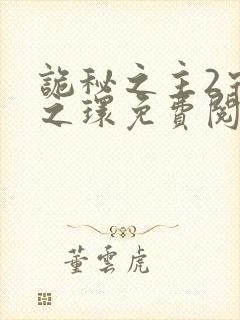 詭秘之主2宿
之環免費閱
董雲虎